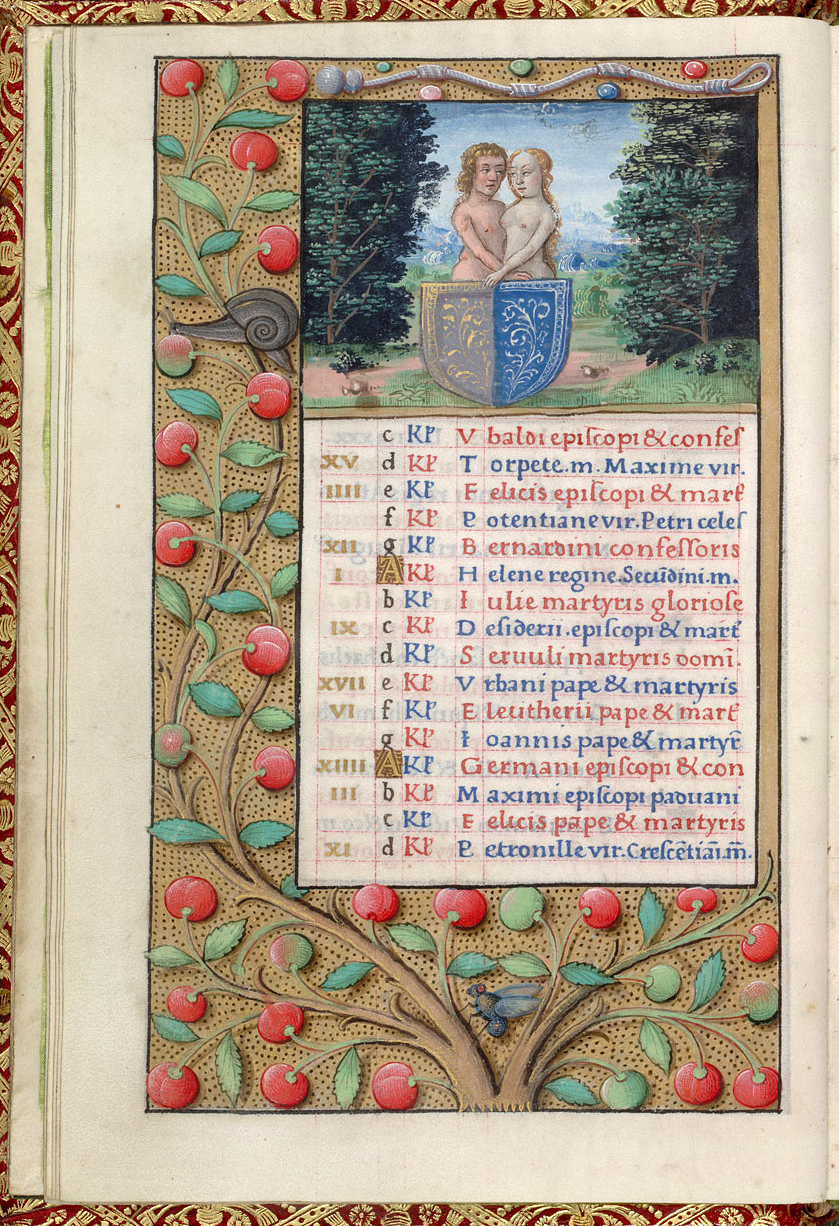 c KL̄ V baldi epiſcopi & confeſ
XV d KL̄ T orpete.m. Maxime vir.
IIII e KL̄ F elicis epiſcopi & mart̄
f KL̄ P otentiane vir. Petri celeſ
XII g KL̄ B ernardini confeſſoris
I A KL̄ H elene regine. Secūdini.m.
b KL̄ I ulie martyris glorioſe
IX c KL̄ D eſiderii. epiſcopi & mart̄
d KL̄ S eruuli martyris domī.
XVII e KL̄ V rbani pape & martyris
VI f KL̄ E leutherii pape & mart̄
g KL̄ I oannis pape & martyr̄
XIIII A KL̄ G ermani epiſcopi & con
III b KL̄ M aximi epiſcopi paduani
c KL̄ F elicis pape & martyris
XI d KL̄ P etronille vir. Creſcētiāi.m̄.